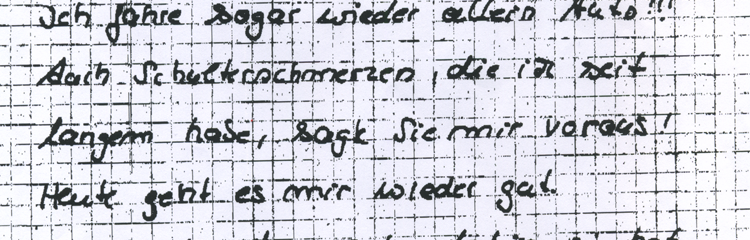 Ich fahre sogar wieder allein Auto!!!
Auch Schulterschmerzen, die ich seit
langem habe, sagt Sie mir voraus!
Heute geht es mir wieder gut.